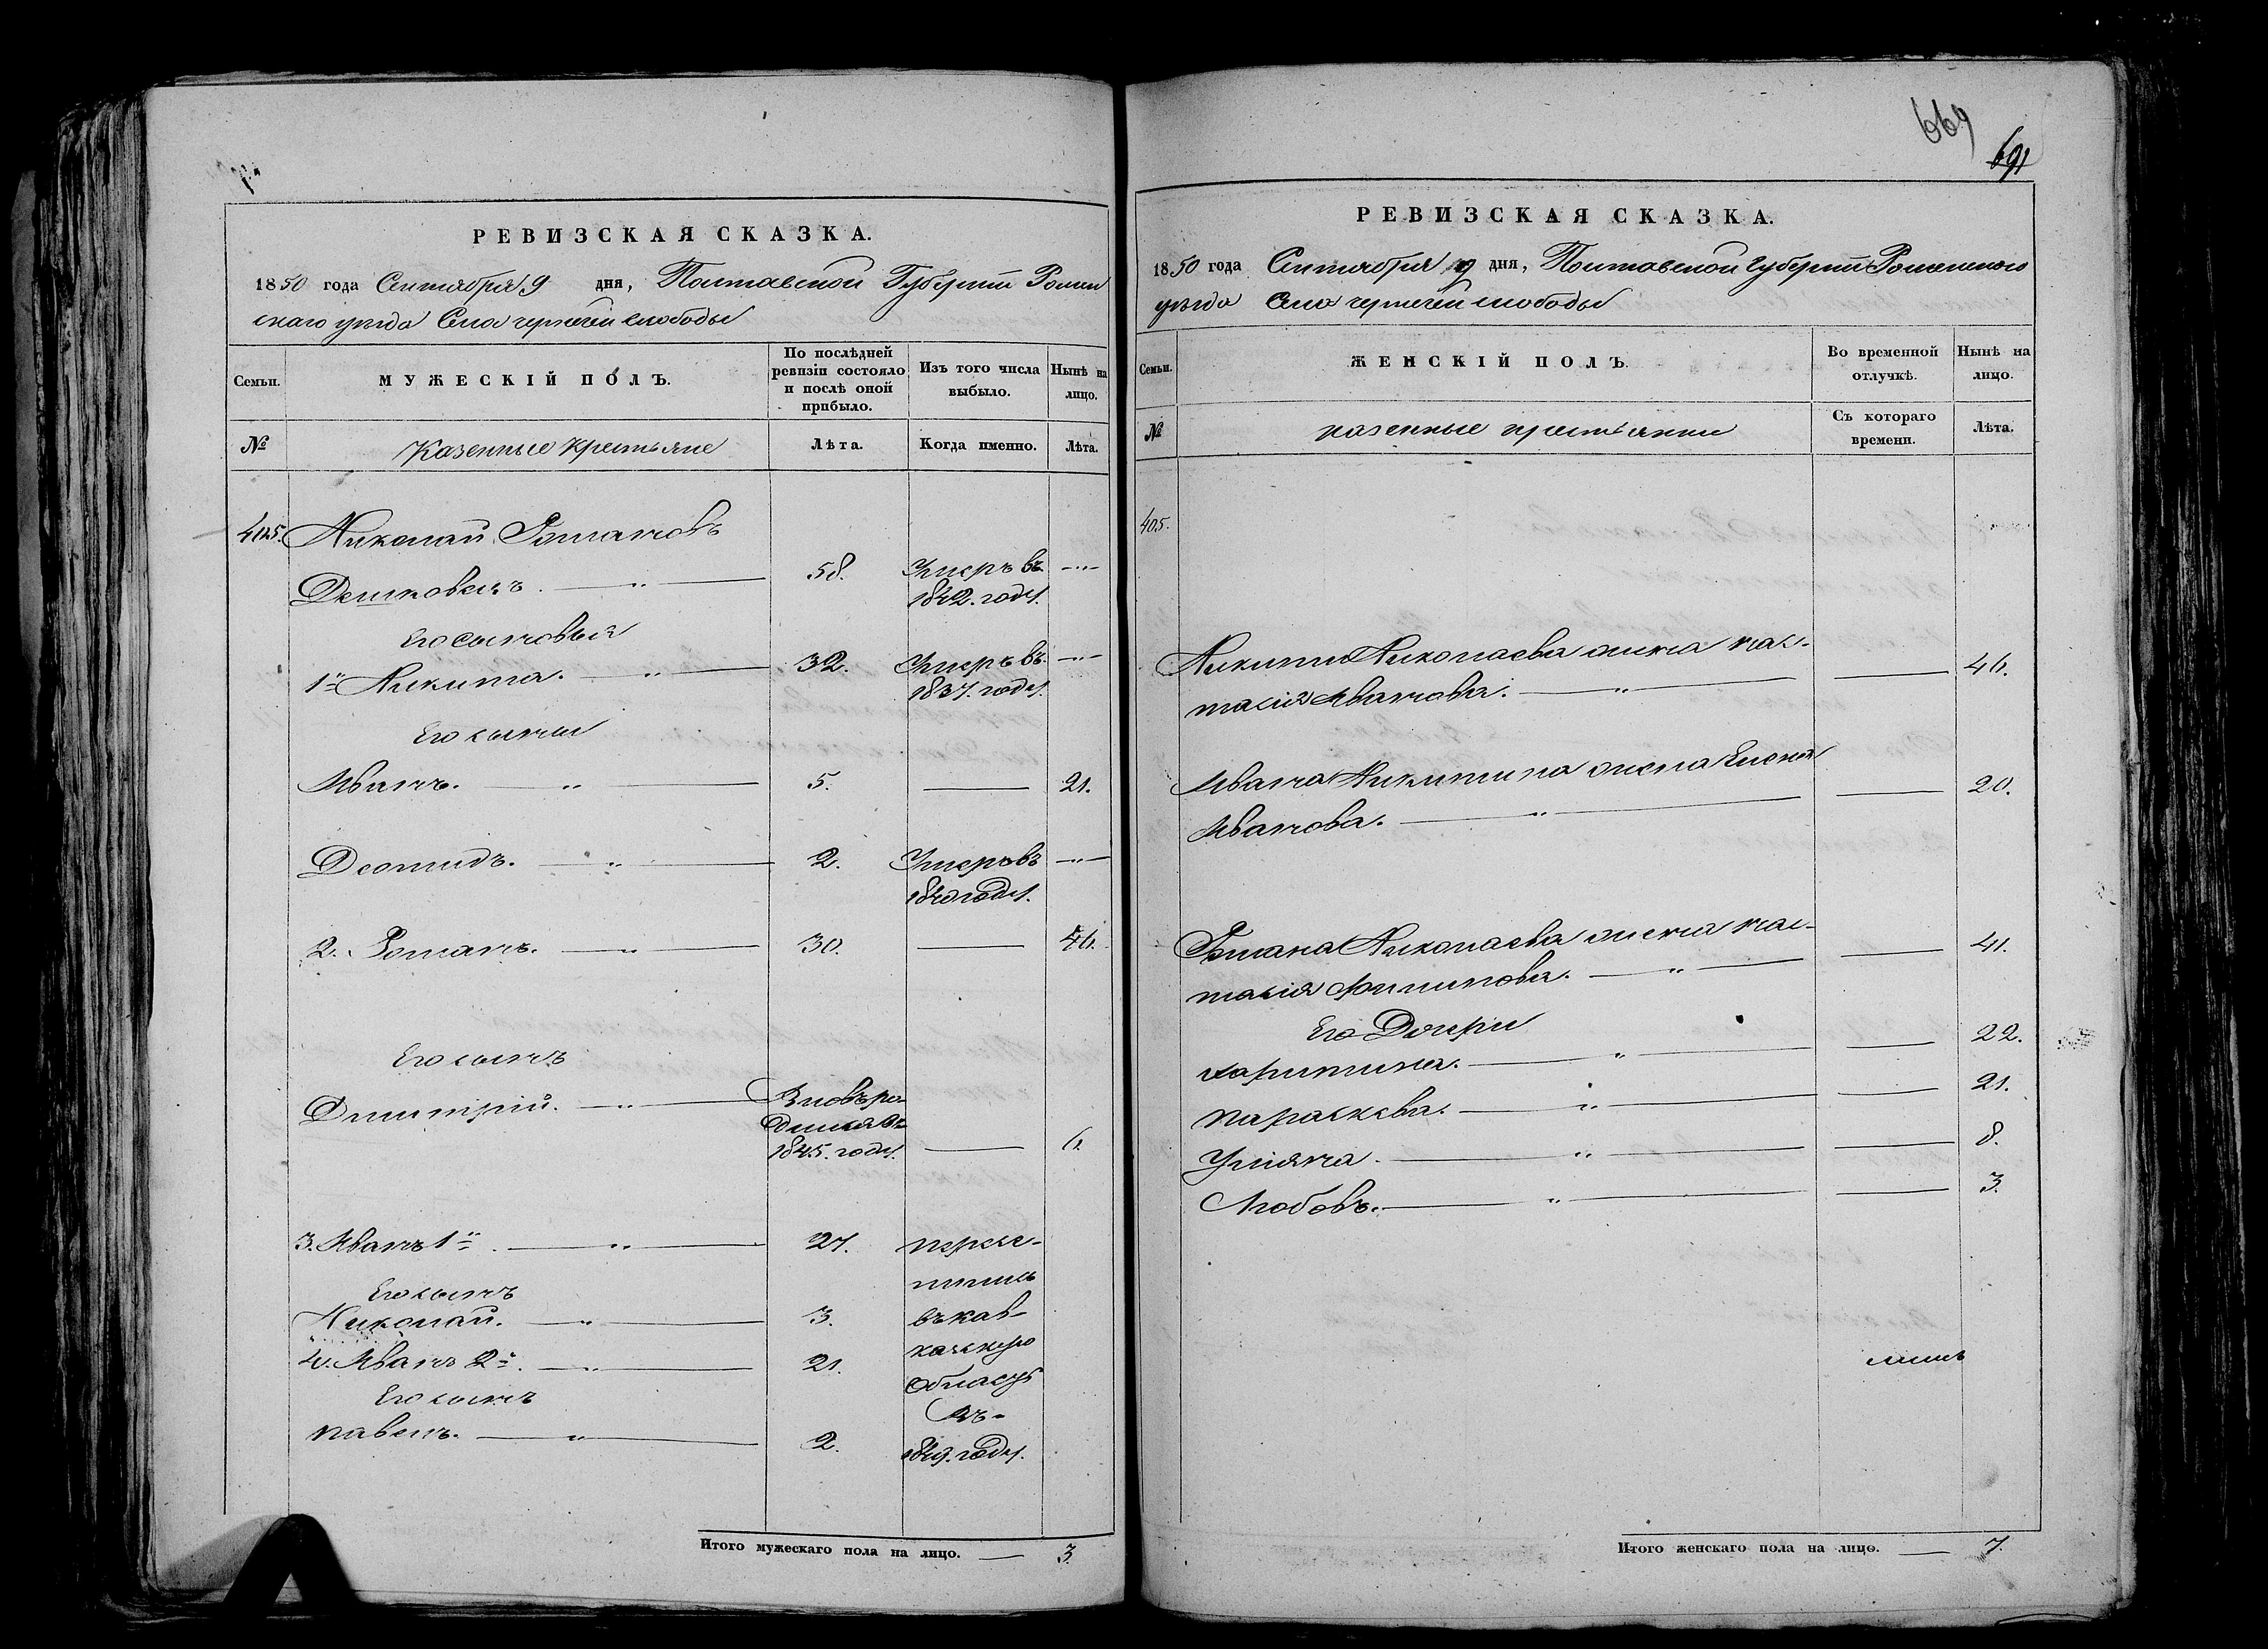 РЕВИЗСКАЯ СКАЗКА.
1850 года Сентября 9 дня, Полтавской Губернiи Ромен
скаго уезда Села чернечей слободы
Семьи.
МУЖЕСКІЙ ПОЛЪ.
По послѣдней
ревизіи состояло
и послѣ оной
прибыло.
Изъ того числа
выбыло.
Нынѣ на
лицо.
№
Казенные крестьяне
Лѣта.
Когда именно.
Лѣта.
405. Николай Романовъ
Дешковецъ. 58. Умеръ въ
1842. году.
Его сыновья
1й Никита. 32. Умеръ въ
1837. году.
Его сыны
Иванъ. 5. 21.
Деомидъ. 2. Умеръ въ
1840 году.
2. Романъ. 30. 46.
Его сынъ
Дмитрій. Вновь ро-
дился въ
1845. году. 6
3. Иванъ 1й. 27. пересе-
лились
Его сынъ
Николай. 3. въ кав-
казскую
4. Иванъ 2й. 21. область
Его сынъ
Въ
Павелъ. 2. 1849. году.
Итого мужескаго пола на лицо. 3.
669
691
РЕВИЗСКАЯ СКАЗКА.
1850 года Сентября 9 дня, Полтавской губернiи Роменского
уезда Села чернечей слободы
Семьи.
ЖЕНСКІЙ ПОЛЪ.
Во временной
отлучкѣ.
Нынѣ на
лицо.
№
казенные крестьянки
Съ котораго
времени.
Лѣта.
405.
Никиты Николаева жена нас-
тасія Иванова. 46.
Ивана Никитина жена
Иванова. 20.
Романа Николаева жена нас-
тасія Филипова. 41.
Его Дочери
харитина. 22.
параскева. 21.
Уліяна. 8.
Любовь. 3.
Итого женскаго пола на лицо. 7.